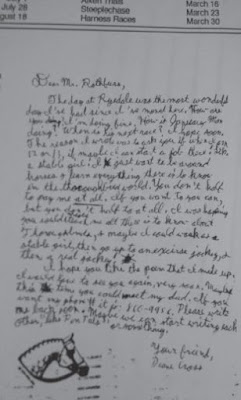 July 28
August 18
Aiken Trials
Steeplechase
Harness Races
March 16
March 23
March 30
Dear Mr. Rothfuss,
The day at Rigedale was the most wonderful
day I've had since I've moved here. How are
you doing? I'm doing fine. How is
doing? When is his next race? I hope soon.
The reason I wrote was to ask you if when I am
12 or 13, if maybe I can start a job there? Like
a stable girl? I just want to be around
horses & learn everything there is to know
in the thoroughbred world. You don't have
to pay me at all. If you want to you can,
but you don't have to at all. I was hoping
you could teach me all there is to know about
Thoroughbreds, & maybe I could work as a
stable girl, then go up to an exercise jockey, &
then a real jockey!
I hope you like the poem that I made up.
I would love to see you again, very soon. Maybe
this time you could meet my dad. If you
want my phone # it is: Please write
me back soon. Maybe we can start writing each
other, like Pen Pals
or something.
Your friend,
Diane Cross